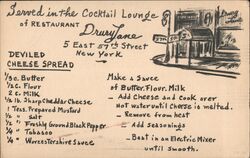 Served in the Cocktail Lounge
of RESTAURANT
Drury Lane
5 East 57th Street
New York
Drury Lane
DEVILED
CHEESE SPREAD
1/3 oz. Butter
1/2 c. Flour
2 c. Milk
1/2 lb. Sharp Cheddar Cheese
1 Teas. Prepared Mustard
1/2 " Salt
1/4 " Freshly Ground Black Pepper
1/4 " Tabasco
1/4 " Worcestershire Sauce
Make a Sauce
of Butter, Flour, Milk
— Add Cheese and Cook over
Hot water until Cheese is melted.
— Remove from heat
— Add seasonings
— Beat in an Electric Mixer
until smooth.